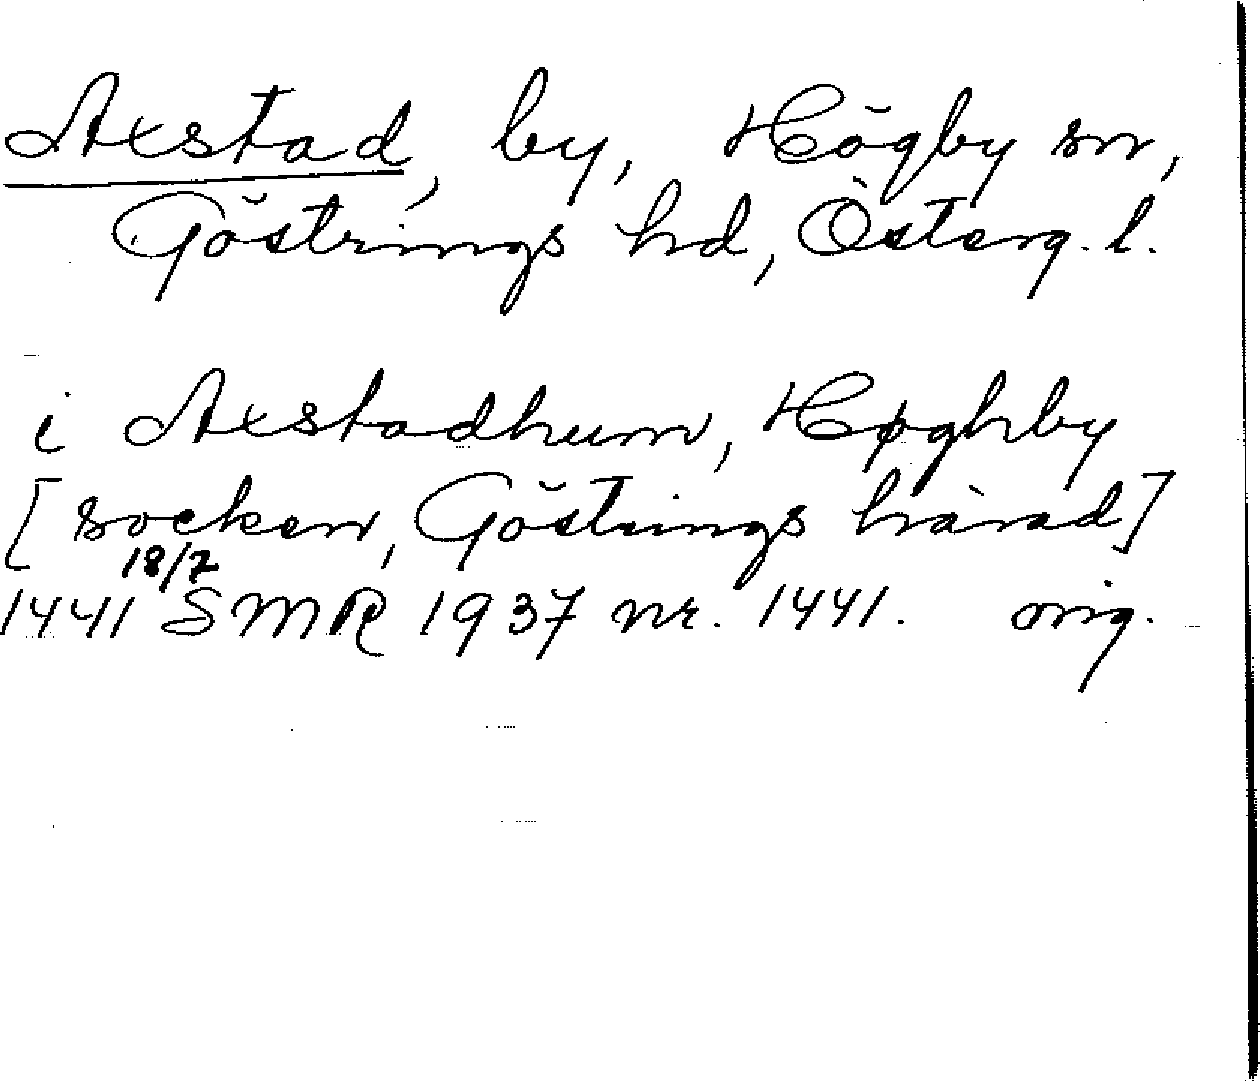 Axstad, by, Högby sn,
Göstrings hd, Österg. l.
i Axstadhum, Høghby
[socken, Göstrings härad]
18/7
1441 SMR 1937 nr. 1441. orig.